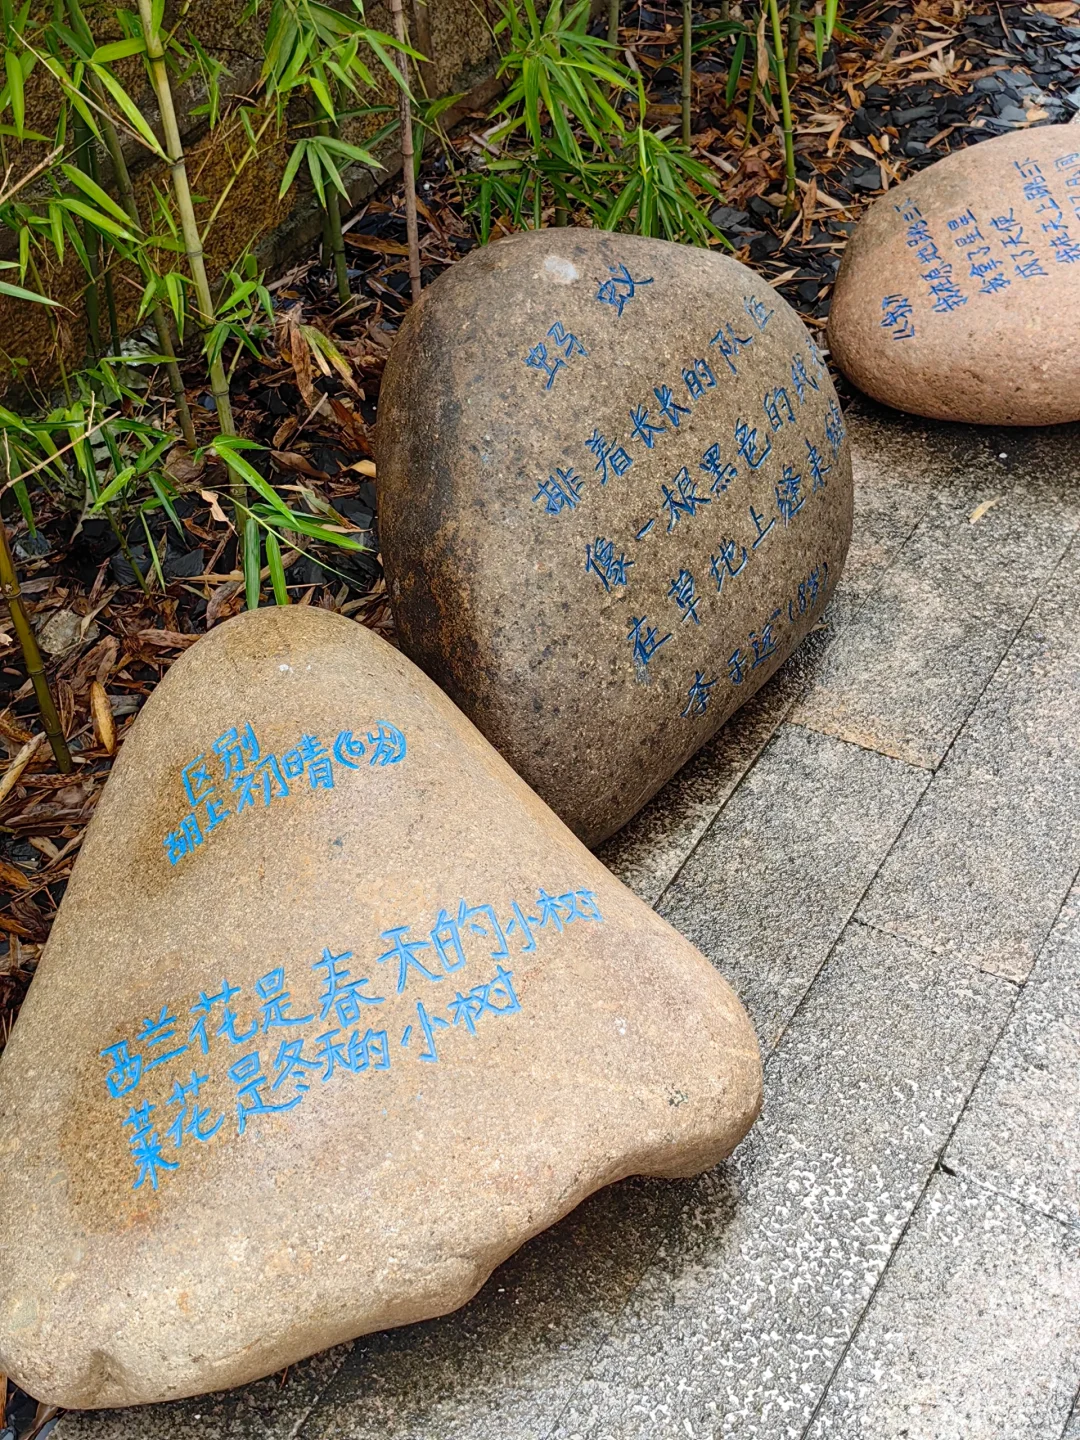 区别
胡上初晴(6岁)
西兰花是春天的小树
菜花是冬天的小树
蚂蚁
排着长长的队伍
像一根黑色的线
在草地上缝来缝
李子远(8岁)
《我》
我从地跳三
我拿了星星
成了天使
我从天上跳三